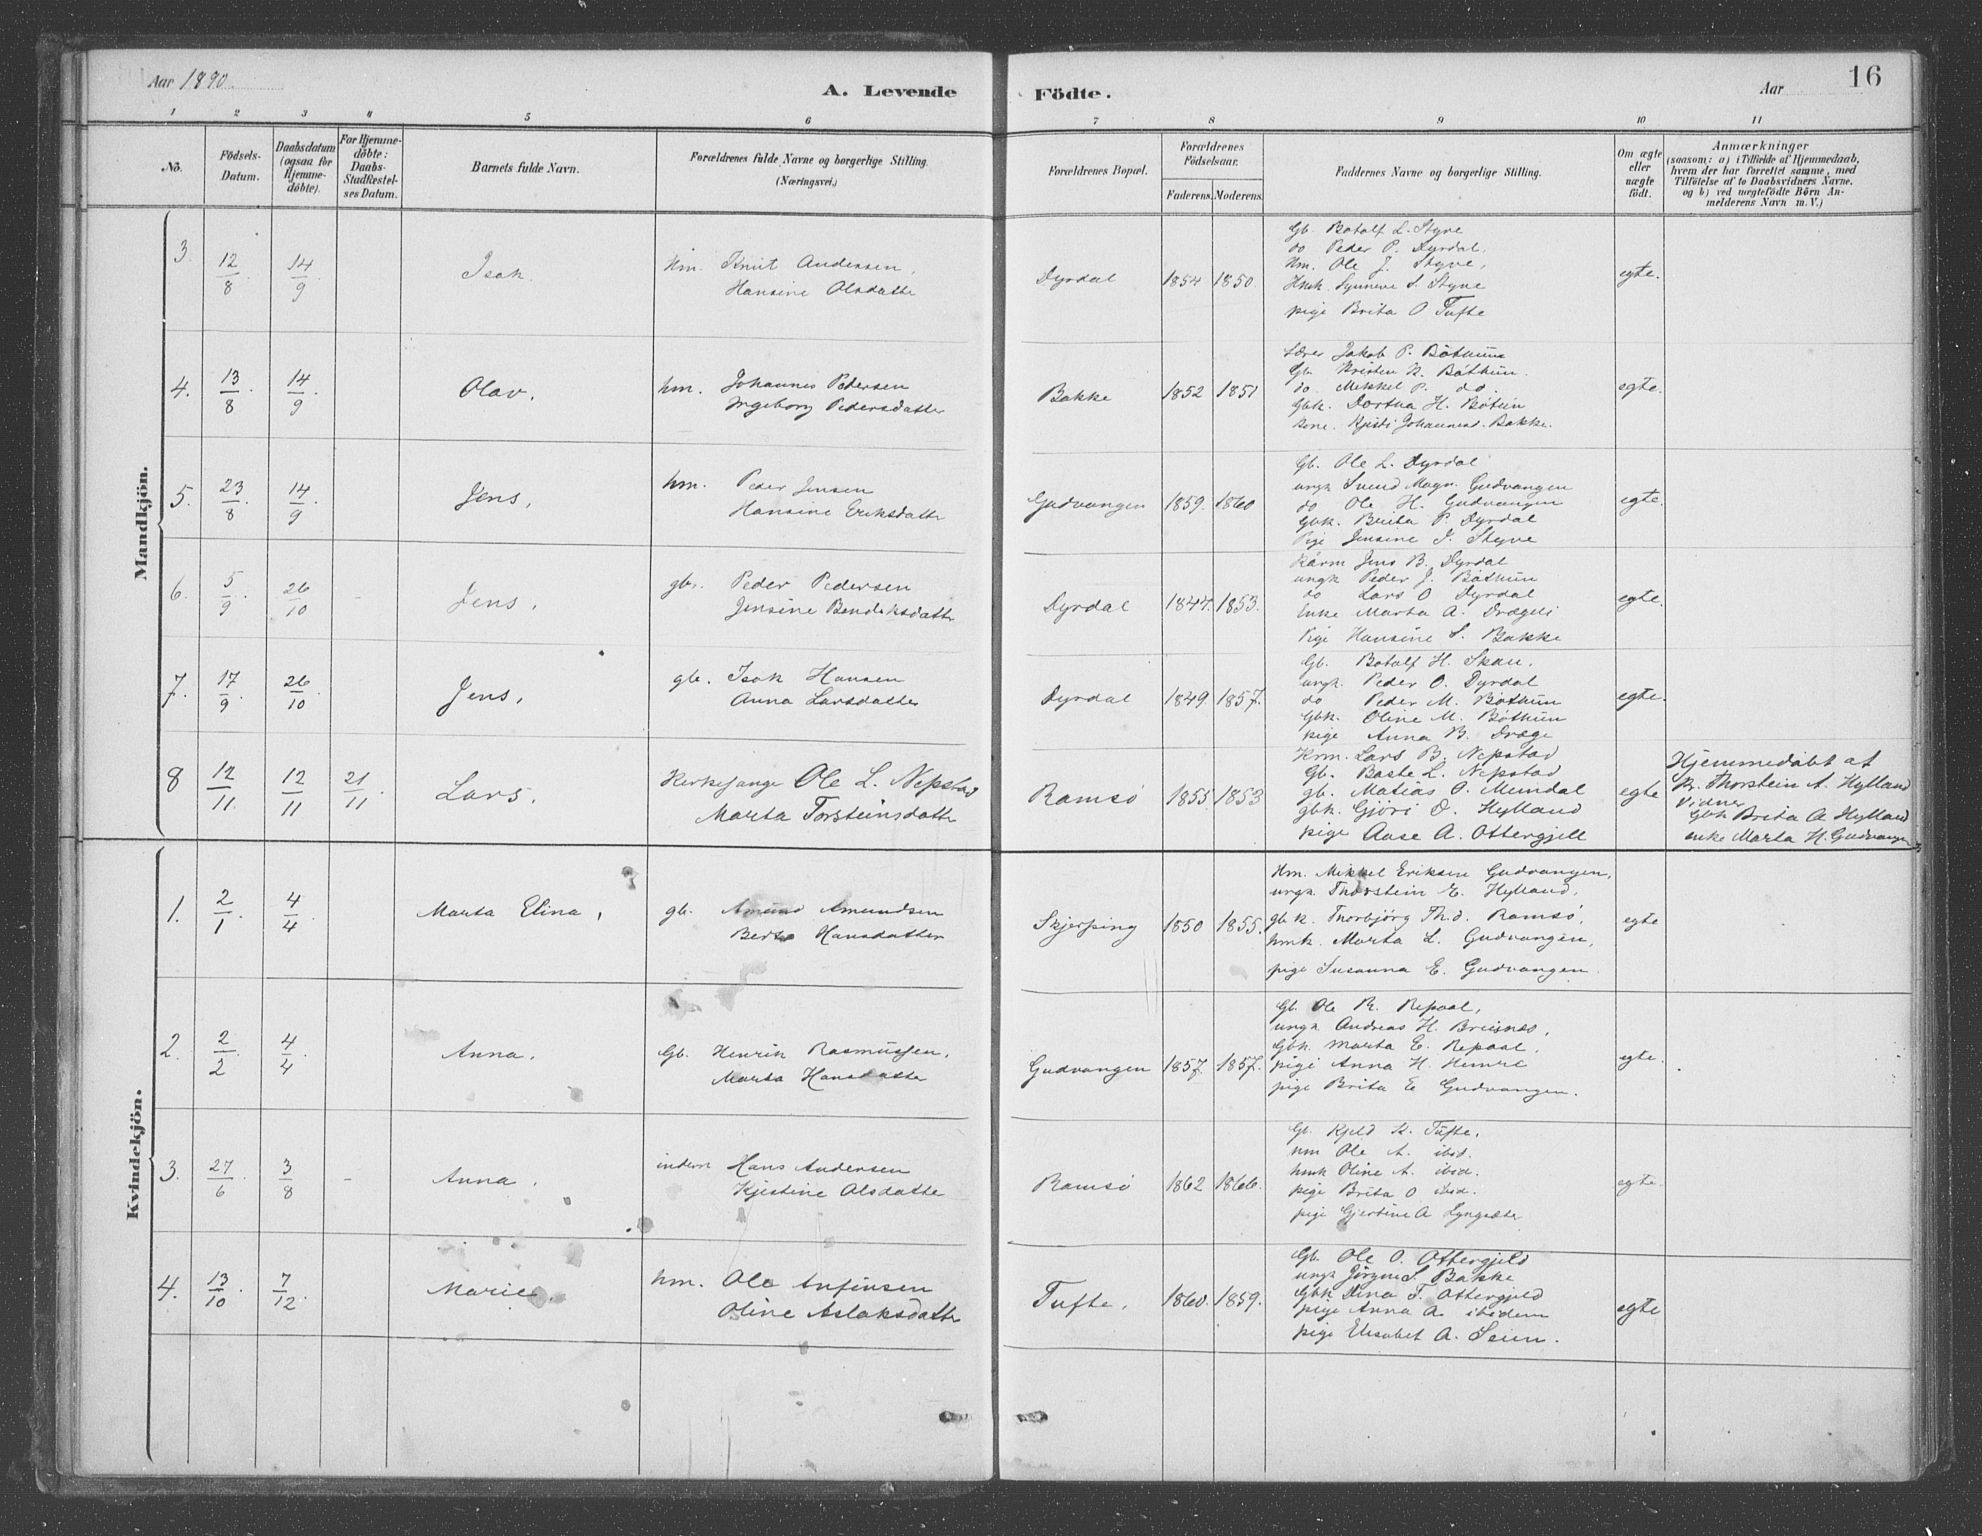 Aar 1890.
A. Levende
Födte.
Aar
16
1
2
3
4
5
6
7
8
9
10
11
No.
Födsels-
Datum.
Daabsdatum
(ogsaa for
Hjemme-
döbte).
For Hjemme-
döbte:
Daabs-
Stadfæstel-
ses Datum.
Barnets fulde Navn.
Forældrenes fulde Navne og borgerlige Stilling.
(Næringsvei.)
Forældrenes Bopæl.
Forældrenes
Födselsaar.
Faderens.
Moderens.
Faddernes Navne og borgerlige Stilling.
Om ægte
eller
uægte
födt.
Anmærkninger
(saasom: a) i Tilfælde af Hjemmedaab,
hvem der har forrettet samme, med
Tilföielse af to Daabsvidners Navne,
og b) ved uægtefödte Börn An-
melderens Navn m. V.)
Mandkjön.
3. 12/8 14/9 Isak. Hm. Knut Andersen,
Hansine Olsdatter
Dyrdal 1854 1850.
Gb. Botolf L. Styve
do Peder P. Dyrdal,
Hm. Ole J. Styve,
Hmk. Synneve S. Styve
pige Brita O Tufte
egte.
4. 13/8. 14/9. Olav. hm. Johannes Pedersen
Ingeborg Pedersdatter
Bakke 1852 1851
Lærer Jakob P. Böthun
Gb. Kristen K. Böthun.
do. Mikkel P. do.
Gbk. Dortea H. Bötun
Kone. Kjisti Johannesd. Bakke.
egte.
5. 23/8 14/9. Jens, hm. Peder Jensen
Hansine Eriksdatter
Gudvangen 1859. 1860
Gb. Ole L. Dyrdal
ungk Svend Magn. Gudvangen
do Ole H. Gudvangen
Gbk. Brita P. Dyrdal
Pige Jensine J. Styve
egte.
6. 5/9. 26/10 - Jens, gb. Peder Pedersen
Jensine Bendiksdatter
Dyrdal 1847. 1853.
Kårm Jens B. Dyrdal
ungk Peder J. Böthun
do Lars O Dyrdal
Enke Marta A. Drægeli
Pige Hansine S. Bakke
egte.
7. 17/9 26/10. Jens, gb. Isak Hansen
Anna Larsdatter
Dyrdal 1849. 1857.
Gb. Botolf H. Skau,
ungk. Peder O. Dyrdal
do Peder M. Böthun
Gbk. Oline M. Böthun
pige Anna B. Dræge
egte.
8 12/11. 12/11 21/11. Lars. Kirkesange Ole L. Nepstad
Marta Torsteinsdatter
Ramsö 1855 1853
Krm. Lars B. Nepstad
Gb. Baste L. Nepstad
gb. Matias O. Mundal
gbk. Gjöri O. Hylland
pige Aase A. Ottergjell
egte
Hjemmedöbt af
Thorstein A. Hylland
Vidner
Gbk Brita A Hylland
enke Marta H. Gudvangen
Kvindekjön.
1. 2/1 4/4. Marta Elina, gb. Amund Amundsen
Berta Hansdatter
Skjerping 1850 1855.
Hm. Mikkel Eriksen Gudvangen,
ungk. Thorstein E. Hylland,
gbk. Thorbjörg Th.d. Ramsö,
hmk. Marta L. Gudvangen,
pige Susanna E. Gudvangen.
egte
2. 2/2 4/4 Anna. Gb. Henrik Rasmussen,
Marta Hansdatter
Gudvangen 1857. 1857.
Gb. Ole R. Repaal,
ungk Andreas H. Breisnæs,
Gbk. Marta E. Repaal,
pige Anna H. Himre
pige Brita E Gudvangen.
egte.
3. 27/6 3/8 - Anna. inderst Hans Andersen
Kjestine Olsdatter
Ramsö 1862 1866.
Gb. Kjeld K. Tufte,
hm Ole A. ibid.
hmk Oline A. ibid.
pige Brita O ibid.
pige Gjertine A Lyngsæter
egte.
4. 13/10 7/12. Marie. hm. Ole Anfinsen
Oline Aslaksdatter
Tufte. 1860. 1859.
Gb. Ole O. Ottergjeld
ungk Jörgen S. Bakke
Gbk Dina T. Ottergjeld
pige Anna A. ibidem
pige Elisabet A. Seim.
egte